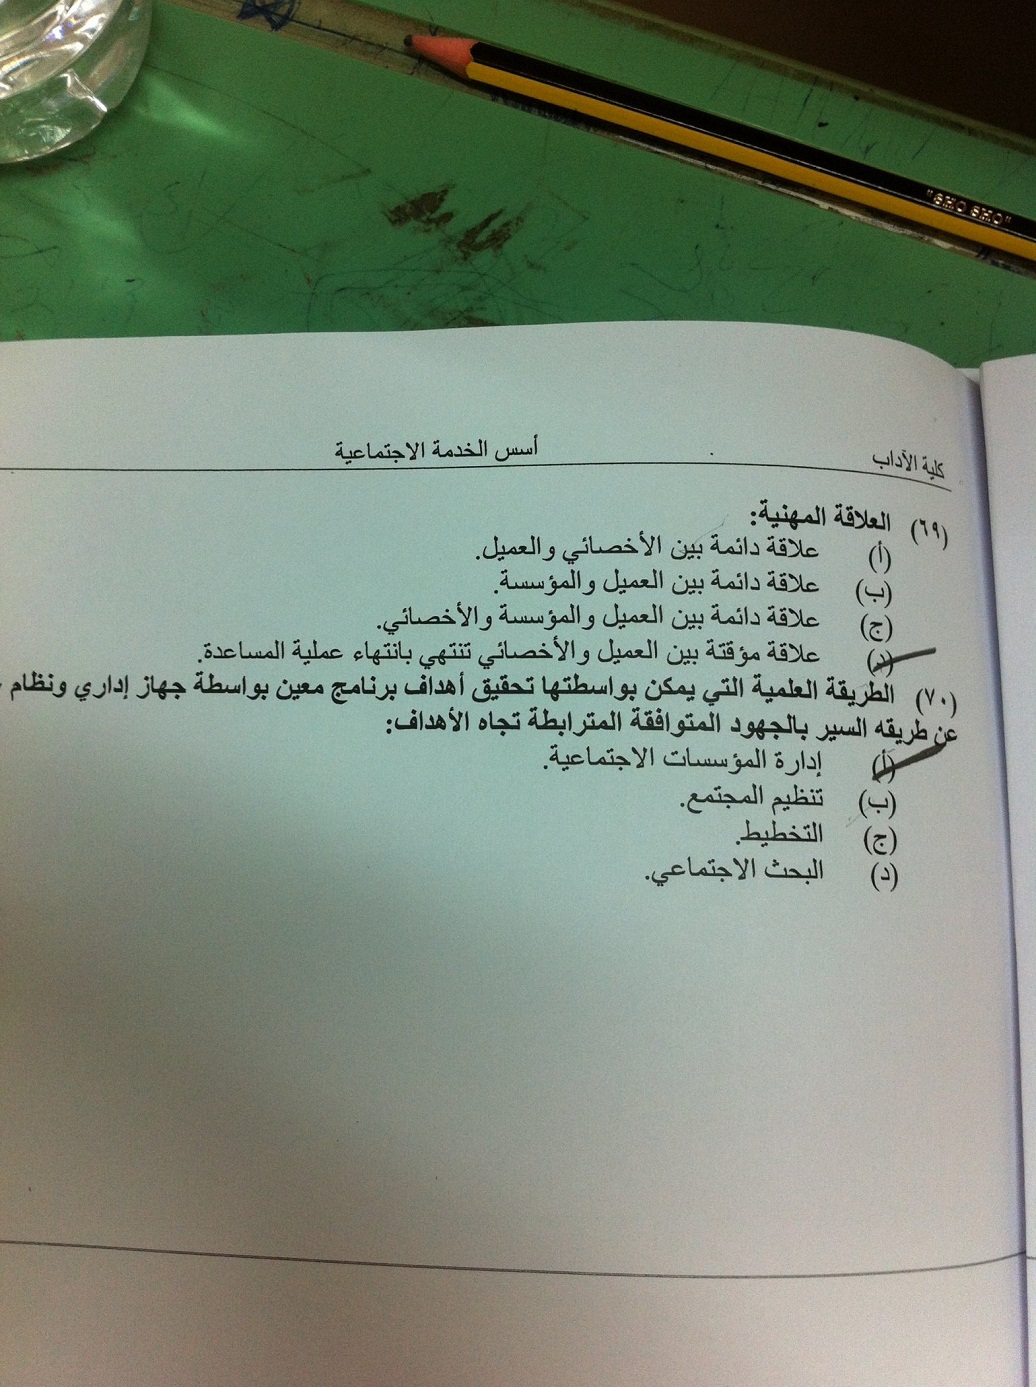 "SHO SHO"
كلية الآداب
أسس الخدمة الاجتماعية
(٦٩) العلاقة المهنية:
(أ) علاقة دائمة بين الأخصائي والعميل.
(ب) علاقة دائمة بين العميل والمؤسسة.
(ج) علاقة دائمة بين العميل والمؤسسة والأخصائي.
(د) علاقة مؤقتة بين العميل والأخصائي تنتهي بانتهاء عملية المساعدة.
(٧٠) الطريقة العلمية التي يمكن بواسطتها تحقيق أهداف برنامج معين بواسطة جهاز إداري ونظام
عن طريقه السير بالجهود المتوافقة المترابطة تجاه الأهداف:
(أ) إدارة المؤسسات الاجتماعية.
(ب) تنظيم المجتمع.
(ج) التخطيط.
(د) البحث الاجتماعي.